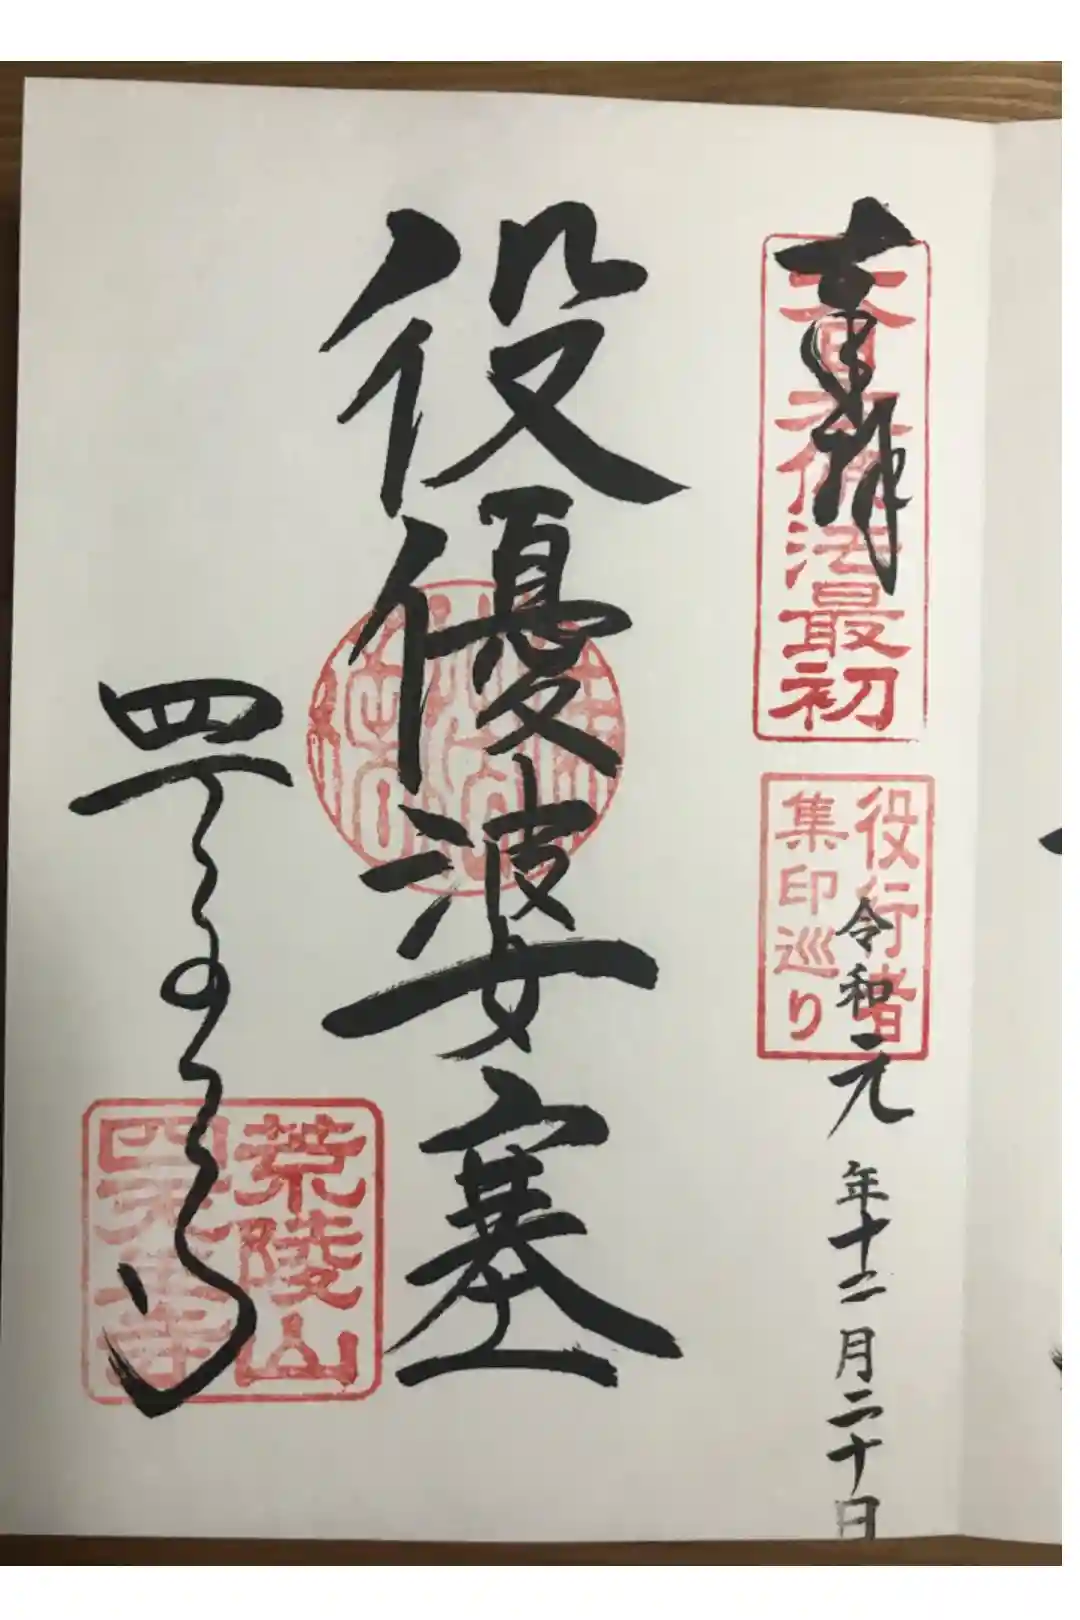 奉拝
大日本佛法最初
役行者
集印巡り
令和元年十二月二十日
役優婆塞
四天王寺
荒陵山
四天王寺